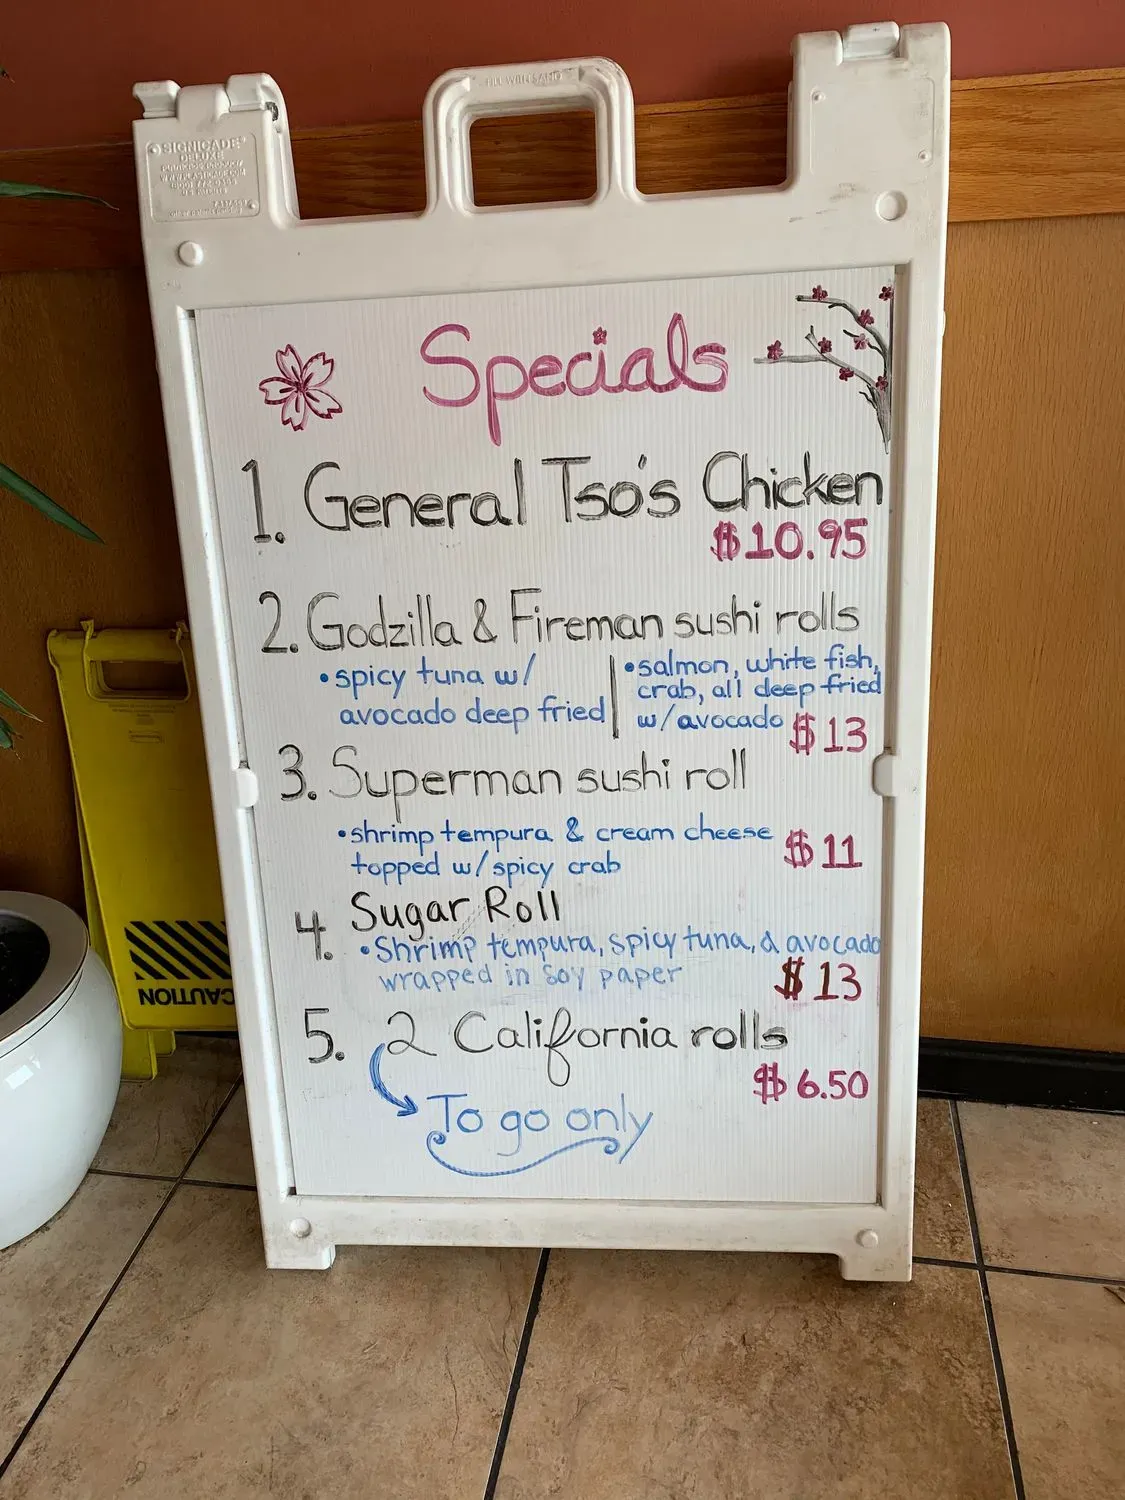 FILL WITH SAND
SIGNICADE®
DELUXE
Specials
1. General Tso's Chicken
$10.95
2. Godzilla & Fireman sushi rolls
• spicy tuna w/
avocado deep fried
• salmon, white fish,
crab, all deep fried
w/avocado $13
3. Superman sushi roll
• shrimp tempura & cream cheese
topped w/spicy crab
$11
4. Sugar Roll
• Shrimp tempura, spicy tuna, & avocado
wrapped in soy paper
$13
5. 2 California rolls
$6.50
To go only
CAUTION